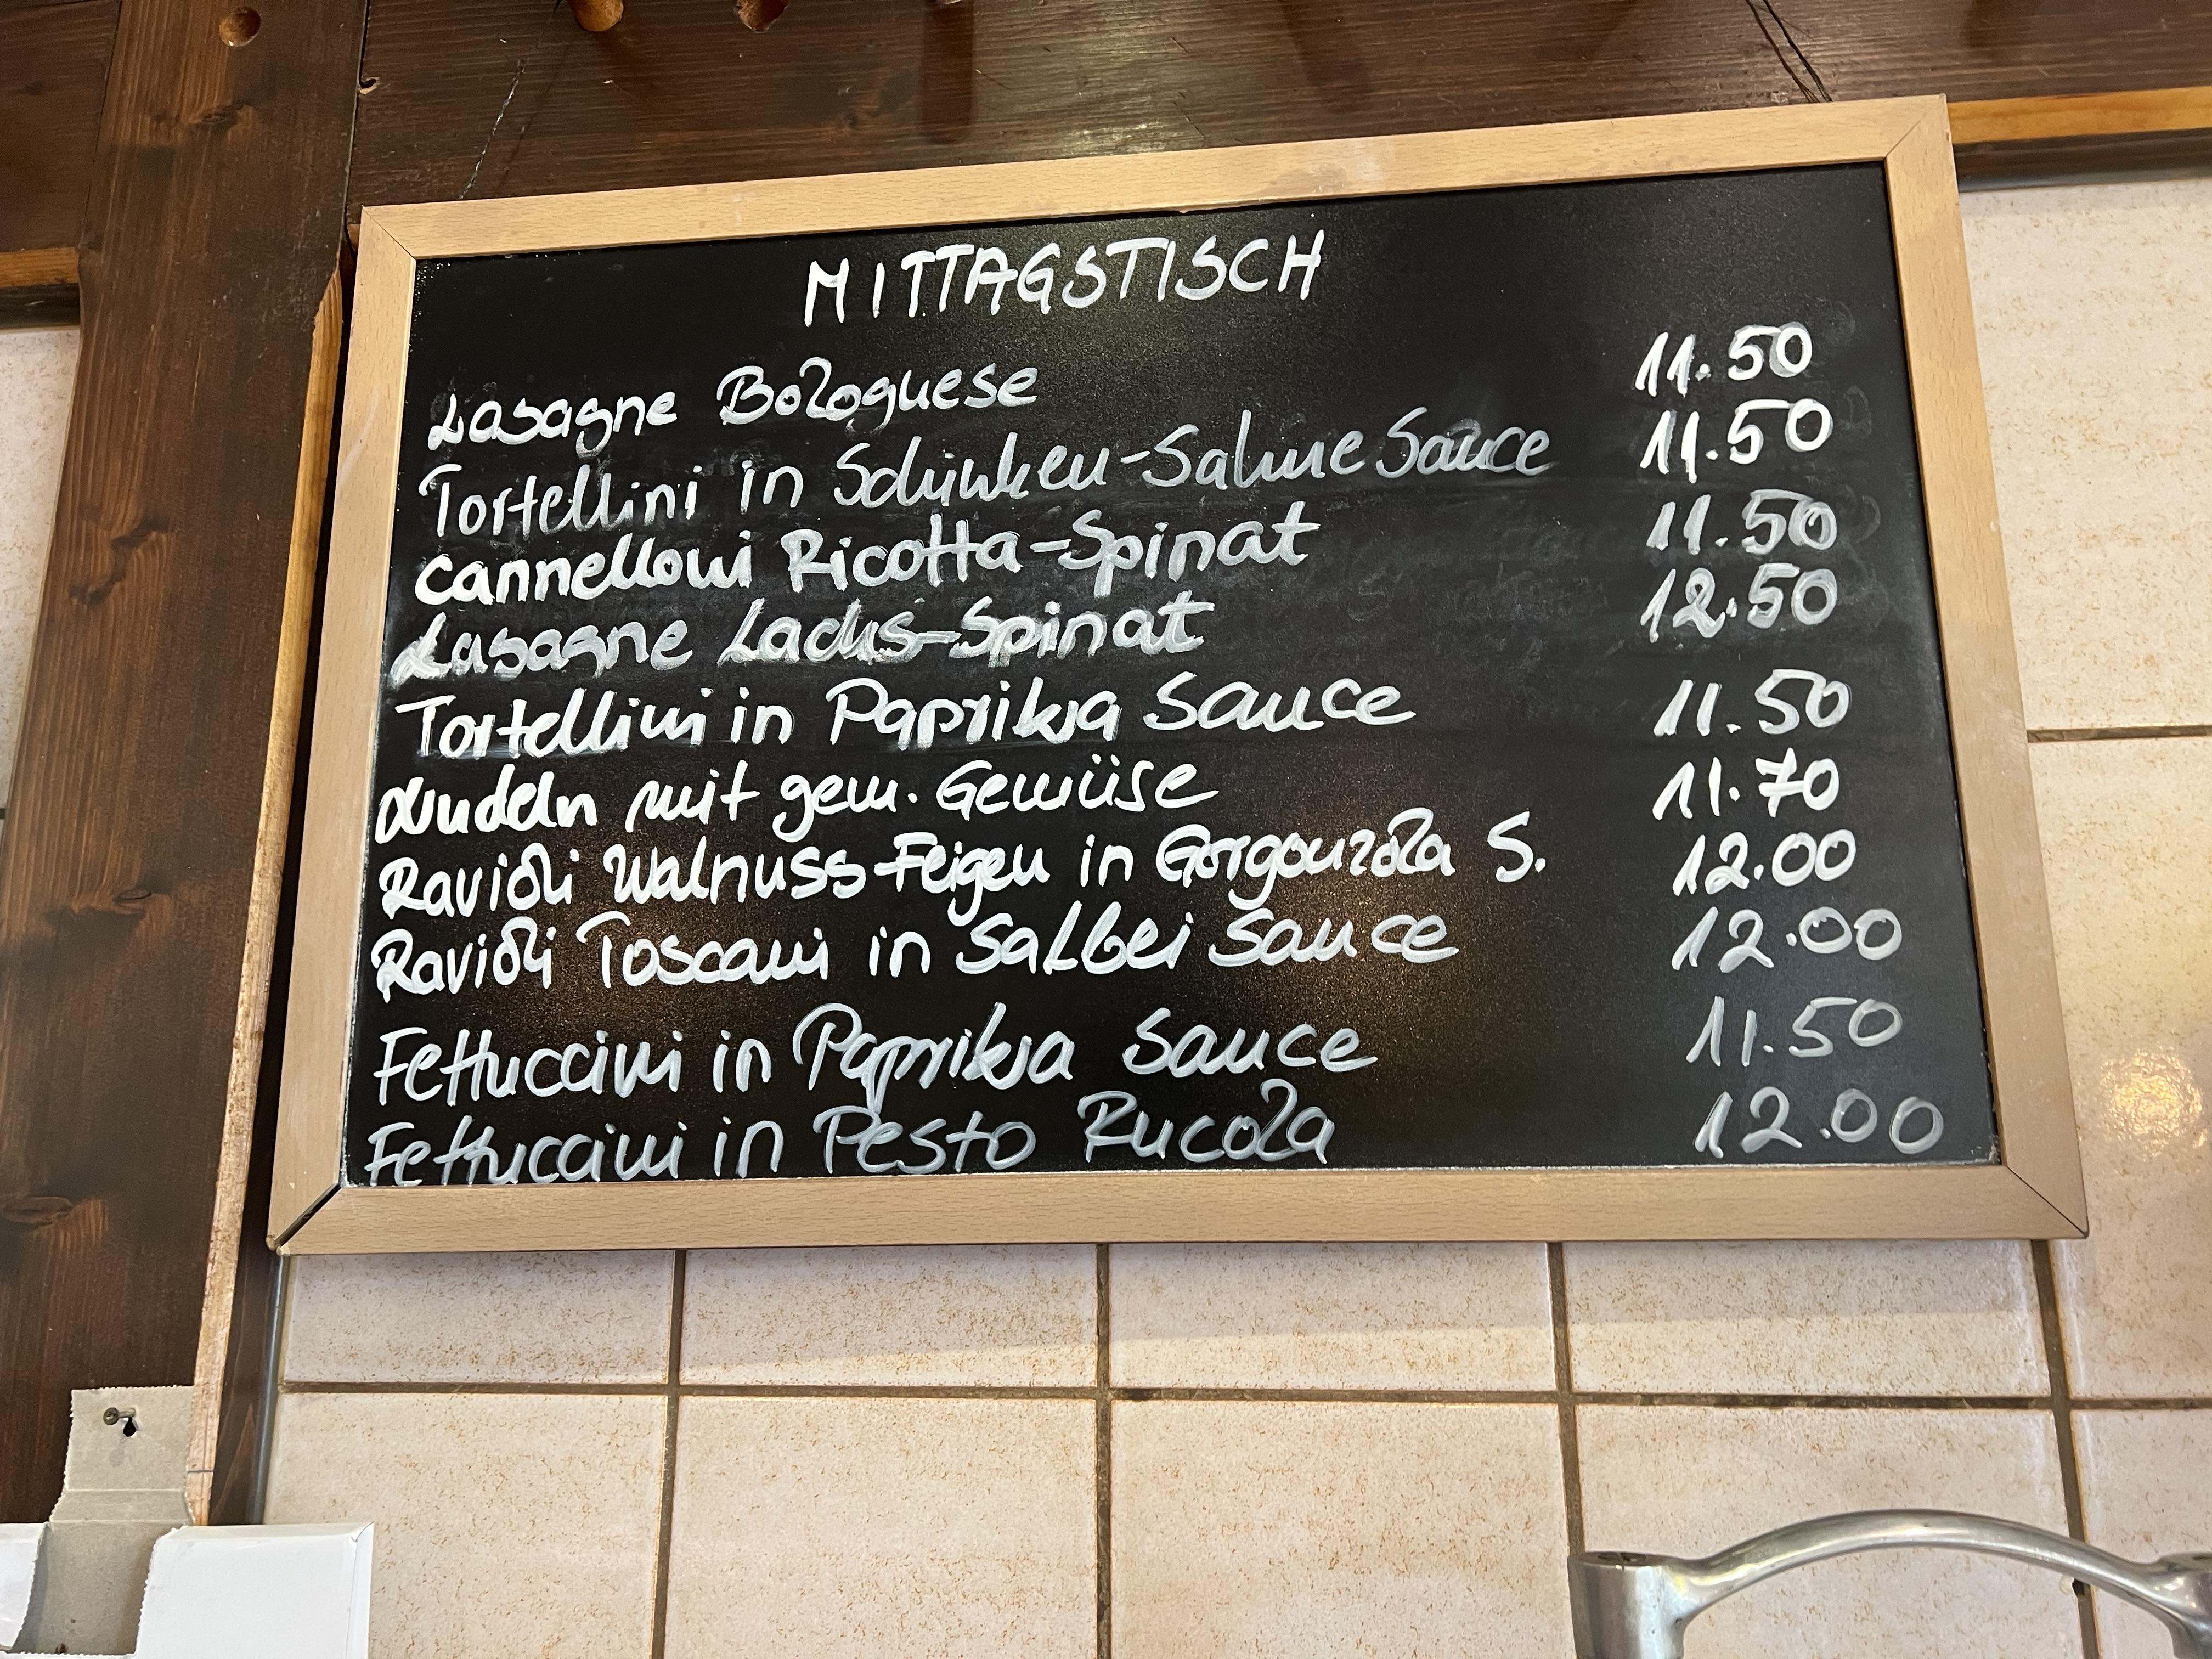 MITTAGSTISCH
Lasagne Bolognese 11.50
Tortellini in Schinken-Sahne Sauce 11.50
Cannelloni Ricotta-Spinat 11.50
Lasagne Lachs-Spinat 12.50
Tortellini in Paprika Sauce 11.50
Nudeln mit gem. Gemüse 11.70
Ravioli Walnuss-Feigen in Gorgonzola S. 12.00
Ravioli Toscani in Salbei Sauce 12.00
Fettuccini in Paprika Sauce 11.50
Fettuccini in Pesto Rucola 12.00